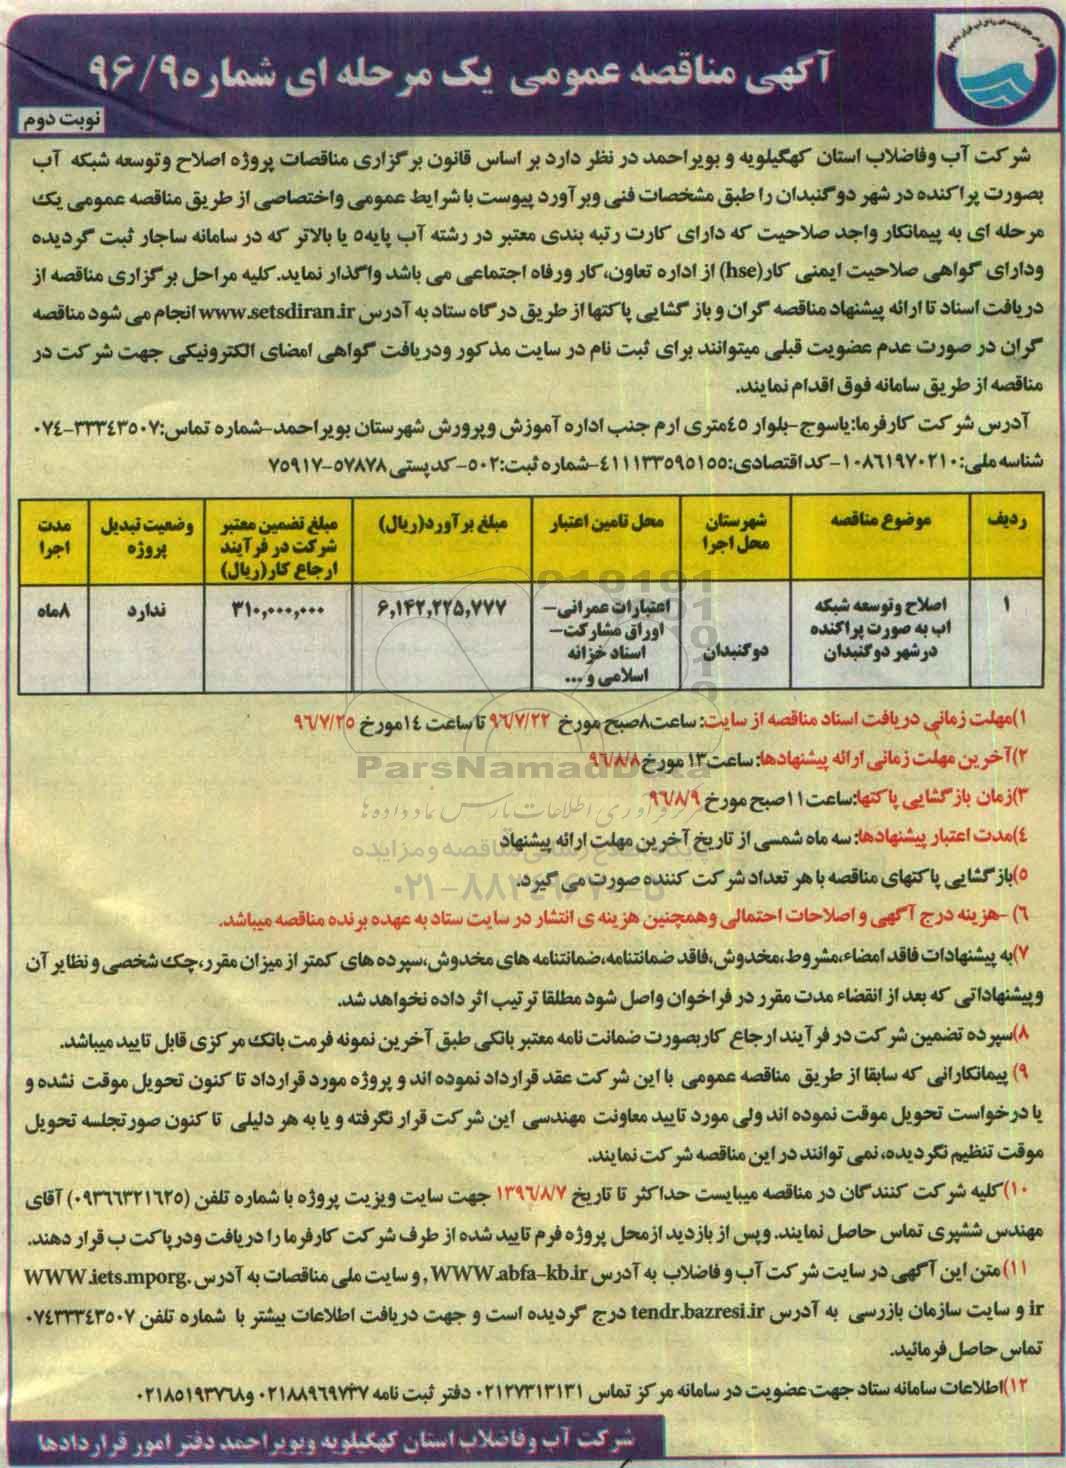 آگهی مناقصه عمومی یک مرحله ای شماره ۹۶/۹
نوبت دوم
شرکت آب وفاضلاب استان کهگیلویه و بویراحمد در نظر دارد بر اساس قانون برگزاری مناقصات پروژه اصلاح وتوسعه شبکه آب
بصورت پراکنده در شهر دوگنبدان را طبق مشخصات فنی وبرآورد پیوست با شرایط عمومی واختصاصی از طریق مناقصه عمومی یک
مرحله ای به پیمانکار واجد صلاحیت که دارای کارت رتبه بندی معتبر در رشته آب پایه۵ یا بالاتر که در سامانه ساجار ثبت گردیده
ودارای گواهی صلاحیت ایمنی کار(hse) از اداره تعاون،کار ورفاه اجتماعی می باشد واگذار نماید.کلیه مراحل برگزاری مناقصه از
دریافت اسناد تا ارائه پیشنهاد مناقصه گران و باز گشایی پاکتها از طریق درگاه ستاد به آدرس www.setsdiran.ir انجام می شود مناقصه
گران در صورت عدم عضویت قبلی میتوانند برای ثبت نام در سایت مذکور ودریافت گواهی امضای الکترونیکی جهت شرکت در
مناقصه از طریق سامانه فوق اقدام نمایند.
آدرس شرکت کارفرما:یاسوج-بلوار ۴۵متری ارم جنب اداره آموزش وپرورش شهرستان بویراحمد-شماره تماس:۳۳۳۴۳۵۰۷-۰۷۴
شناسه ملی:۱۰۸۶۱۹۷۰۲۱۰-کد اقتصادی:۴۱۱۱۳۳۵۹۵۱۵۵-شماره ثبت:۵۰۲-کد پستی ۵۷۸۷۸-۷۵۹۱۷
ردیف
موضوع مناقصه
شهرستان
محل اجرا
محل تامین اعتبار
مبلغ برآورد(ریال)
مبلغ تضمین معتبر
شرکت در فرآیند
ارجاع کار(ریال)
وضعیت تبدیل
پروژه
مدت
اجرا
۱
اصلاح وتوسعه شبکه
اب به صورت پراکنده
درشهر دوگنبدان
دوگنبدان
اعتبارات عمرانی-
اوراق مشارکت-
اسناد خزانه
اسلامی و ...
۶,۱۴۲,۲۲۵,۷۷۷
۳۱۰,۰۰۰,۰۰۰
ندارد
۸ماه
۱)مهلت زمانی دریافت اسناد مناقصه از سایت: ساعت۸صبح مورخ ۹۶/۷/۲۲ تا ساعت ۱۴مورخ ۹۶/۷/۲۵
۲)آخرین مهلت زمانی ارائه پیشنهادها: ساعت۱۳ مورخ۹۶/۸/۸
ParsNamadData
۳)زمان بازگشایی پاکتها:ساعت۱۱صبح مورخ ۹۶/۸/۹
۴)مدت اعتبار پیشنهادها: سه ماه شمسی از تاریخ آخرین مهلت ارائه پیشنهاد
۵)بازگشایی پاکتهای مناقصه با هر تعداد شرکت کننده صورت می گیرد.
۶) -هزینه درج آگهی و اصلاحات احتمالی وهمچنین هزینه ی انتشار در سایت ستاد به عهده برنده مناقصه میباشد.
۷)به پیشنهادات فاقد امضاء،مشروط،مخدوش،فاقد ضمانتنامه،ضمانتنامه های مخدوش،سپرده های کمتر از میزان مقرر،چک شخصی و نظایر آن
وپیشنهاداتی که بعد از انقضاء مدت مقرر در فراخوان واصل شود مطلقا ترتیب اثر داده نخواهد شد.
۸)سپرده تضمین شرکت در فرآیند ارجاع کاربصورت ضمانت نامه معتبر بانکی طبق آخرین نمونه فرمت بانک مرکزی قابل تایید میباشد.
۹) پیمانکارانی که سابقا از طریق مناقصه عمومی با این شرکت عقد قرارداد نموده اند و پروژه مورد قرارداد تا کنون تحویل موقت نشده و
یا درخواست تحویل موقت نموده اند ولی مورد تایید معاونت مهندسی این شرکت قرار نگرفته و یا به هر دلیلی تا کنون صورتجلسه تحویل
موقت تنظیم نگردیده، نمی توانند در این مناقصه شرکت نمایند.
۱۰)کلیه شرکت کنندگان در مناقصه میبایست حداکثر تا تاریخ ۱۳۹۶/۸/۷ جهت سایت ویزیت پروژه با شماره تلفن (۰۹۳۶۶۳۲۱۶۲۵) آقای
مهندس ششپری تماس حاصل نمایند. وپس از بازدید ازمحل پروژه فرم تایید شده از طرف شرکت کارفرما را دریافت ودرپاکت ب قرار دهند.
۱۱)متن این آگهی در سایت شرکت آب و فاضلاب به آدرس WWW.abfa-kb.ir , و سایت ملی مناقصات به آدرس WWW.iets.mporg.
ir و سایت سازمان بازرسی به آدرس tendr.bazresi.ir درج گردیده است و جهت دریافت اطلاعات بیشتر با شماره تلفن ۰۷۴۳۳۳۴۳۵۰۷
تماس حاصل فرمائید.
۱۲)اطلاعات سامانه ستاد جهت عضویت در سامانه مرکز تماس ۰۲۱۲۷۳۱۳۱۳۱ دفتر ثبت نامه ۰۲۱۸۸۹۶۹۷۳۷ و۰۲۱۸۵۱۹۳۷۶۸
شرکت آب وفاضلاب استان کهگیلویه وبویراحمد دفتر امور قراردادها